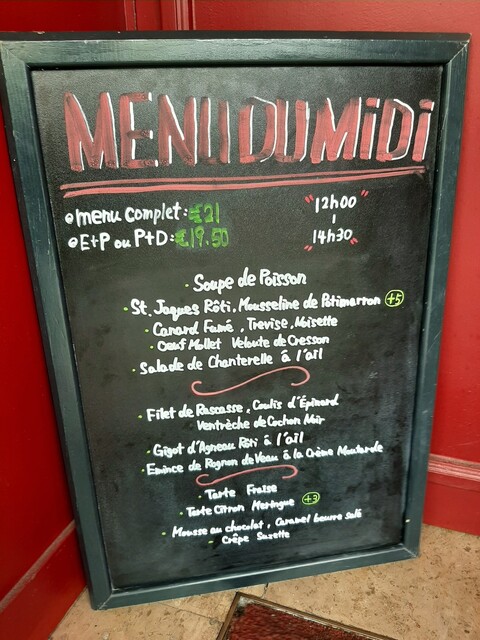 MENU DU MiDi
menu complet: €21
E+P ou P+D: €19.50
"12h00"
-
"14h30"
· Soupe de Poisson
· St. Jaques Rôti, Mousseline de Potimarron +5
· Canard Fumé, Trevise, Noisette
· Oeuf Mollet Veloute de Cresson
· Salade de Chanterelle à l'ail
· Filet de Rascasse, Coulis d'Épinard
Ventrèche de Cochon Noir
· Gigot d'Agneau Rôti à l'ail
· Emince de Rognon de Veau à la Crème Moutarde
· Tarte Fraise
· Tarte Citron Meringue +3
· Mousse au chocolat, Caramel beurre salé
· Crêpe Suzette